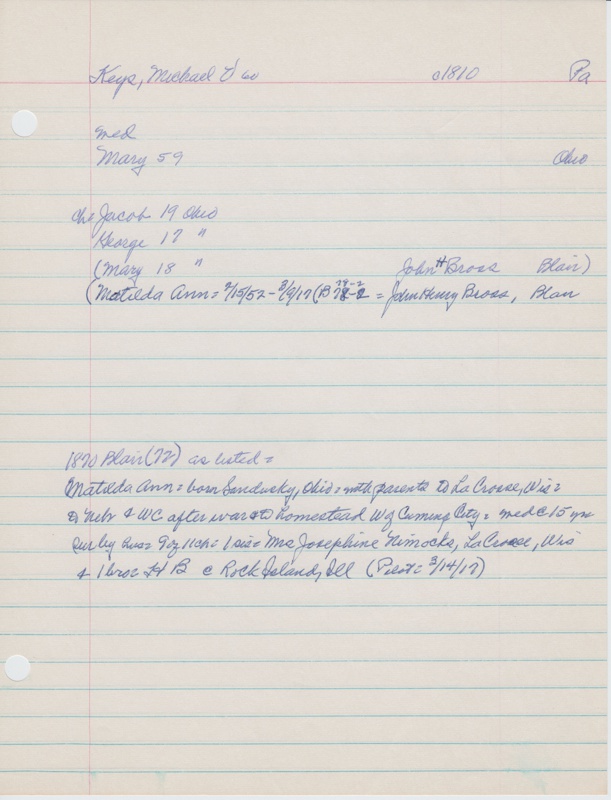 Keys, Michael 60 c1810 Pa
med
Mary 59 Ohio
ch= Jacob 19 Ohio
George 17 "
(Mary 18 " John H Bross Blair)
(Matilda Ann = 2/15/52 - 3/9/17 (B 79-2 = John Henry Bross, Blair
1870 Blair (72) as listed =
Matilda Ann = born Sandusky, Ohio = with parents to LaCrosse, Wis =
to Neb & WC after war = to homestead W of Cuming City = med c 15 yrs
sur by hus = 9 of 11 ch = 1 sis = Mrs Josephine Nimocks, LaCrosse, Wis
& 1 bro = H B c Rock Island, Ill (Pilot = 3/14/17)